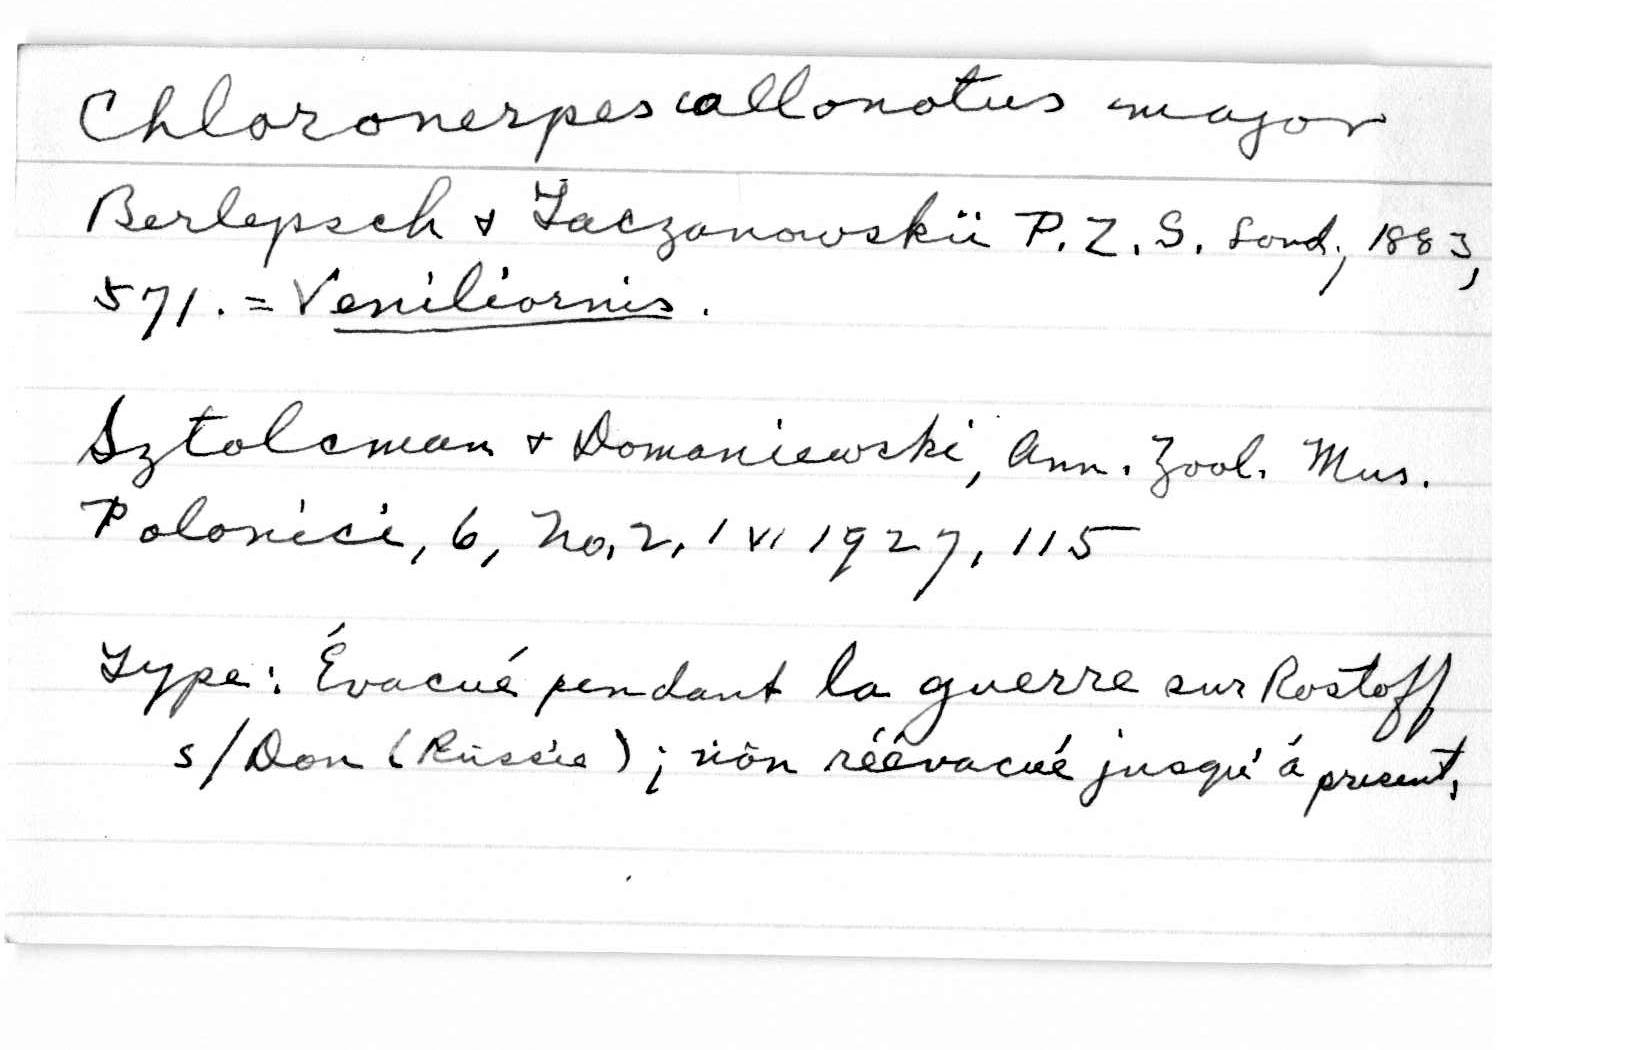 Chloronerpes callonotus major
Berlepsch & Taczanowskii P. Z. S. Lond., 1883,
571. = Veniliornis.
Sztolcman & Domaniewski, Ann. Zool. Mus.
Polonici, 6, No. 2, 1 VI 1927, 115
Type: Évacué pendant la guerre sur Rostoff
s/Don (Russie); nòn réévacué jusqu'á present.